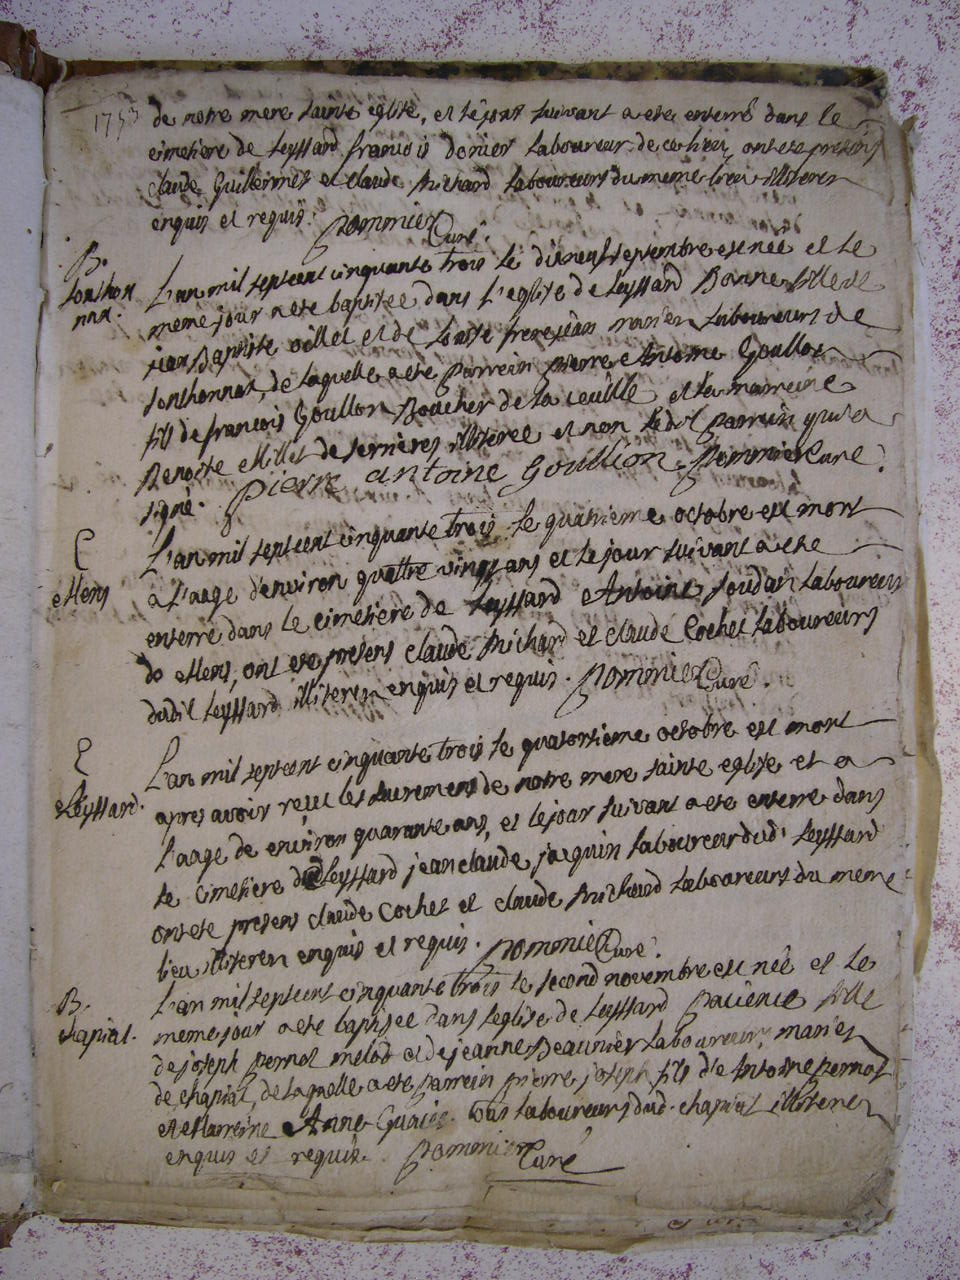 1753
de notre mere sainte eglise, et le jour suivant a ete enterré dans le
cimetiere de Leyssard francois dorier laboureur de ce lieu, ont ete presens
claude Guillermet et claude Michard laboureurs du meme lieu illiterez
enquis et requis. Pommier Curé.
B.
sonthon
nax.
L'an mil septcent cinquante trois le dixneuf septembre est née et le
meme jour a ete baptisée dans l'eglise de Leyssard Banne fille de
jean Baptiste millet et de mariez laboureurs de
sonthonnax, de laquelle a ete parrein pierre Antoine Goullon
fils de francois Goullon Boucher de la et la marreine
Benoite Millet de serrieres illiterée et non le dit parrein qui a
signé. pierre antoine Goullion Pommier Curé.
E
Mens
L'an mil septcent cinquante trois le quatrieme octobre est mort
a l'aage d'environ quattre vingts ans et le jour suivant a ete
enterré dans le cimetiere de Leyssard Antoine soudan laboureur
de Mens, ont ete presens claude Michard et claude Cochet laboureurs
dudit Leyssard illiterez enquis et requis. Pommier Curé.
E
Leyssard.
L'an mil septcent cinquante trois le quatorzieme octobre est mort
apres avoir reçu les sacremens de notre mere sainte eglise et a
l'aage de environ quarante ans, et le jour suivant a ete enterré dans
le cimetiere de Leyssard jean claude jaquin laboureur dud. Leyssard
ont ete presens claude Cochet et claude Michaud laboureurs du meme
lieu illiterez enquis et requis. Pommier Curé.
B.
chapiat.
L'an mil septcent cinquante trois le second novembre est née et le
meme jour a ete baptisée dans l'eglise de Leyssard Pacience fille
de joseph pernot melod et de jeanne Beaunier laboureurs, mariez
de chapiat, de laquelle a ete parrein pierre joseph fils d'Antoine pernot
et Marreine Anne tous laboureurs dud. chapiat illiterez
enquis et requis. Pommier Curé